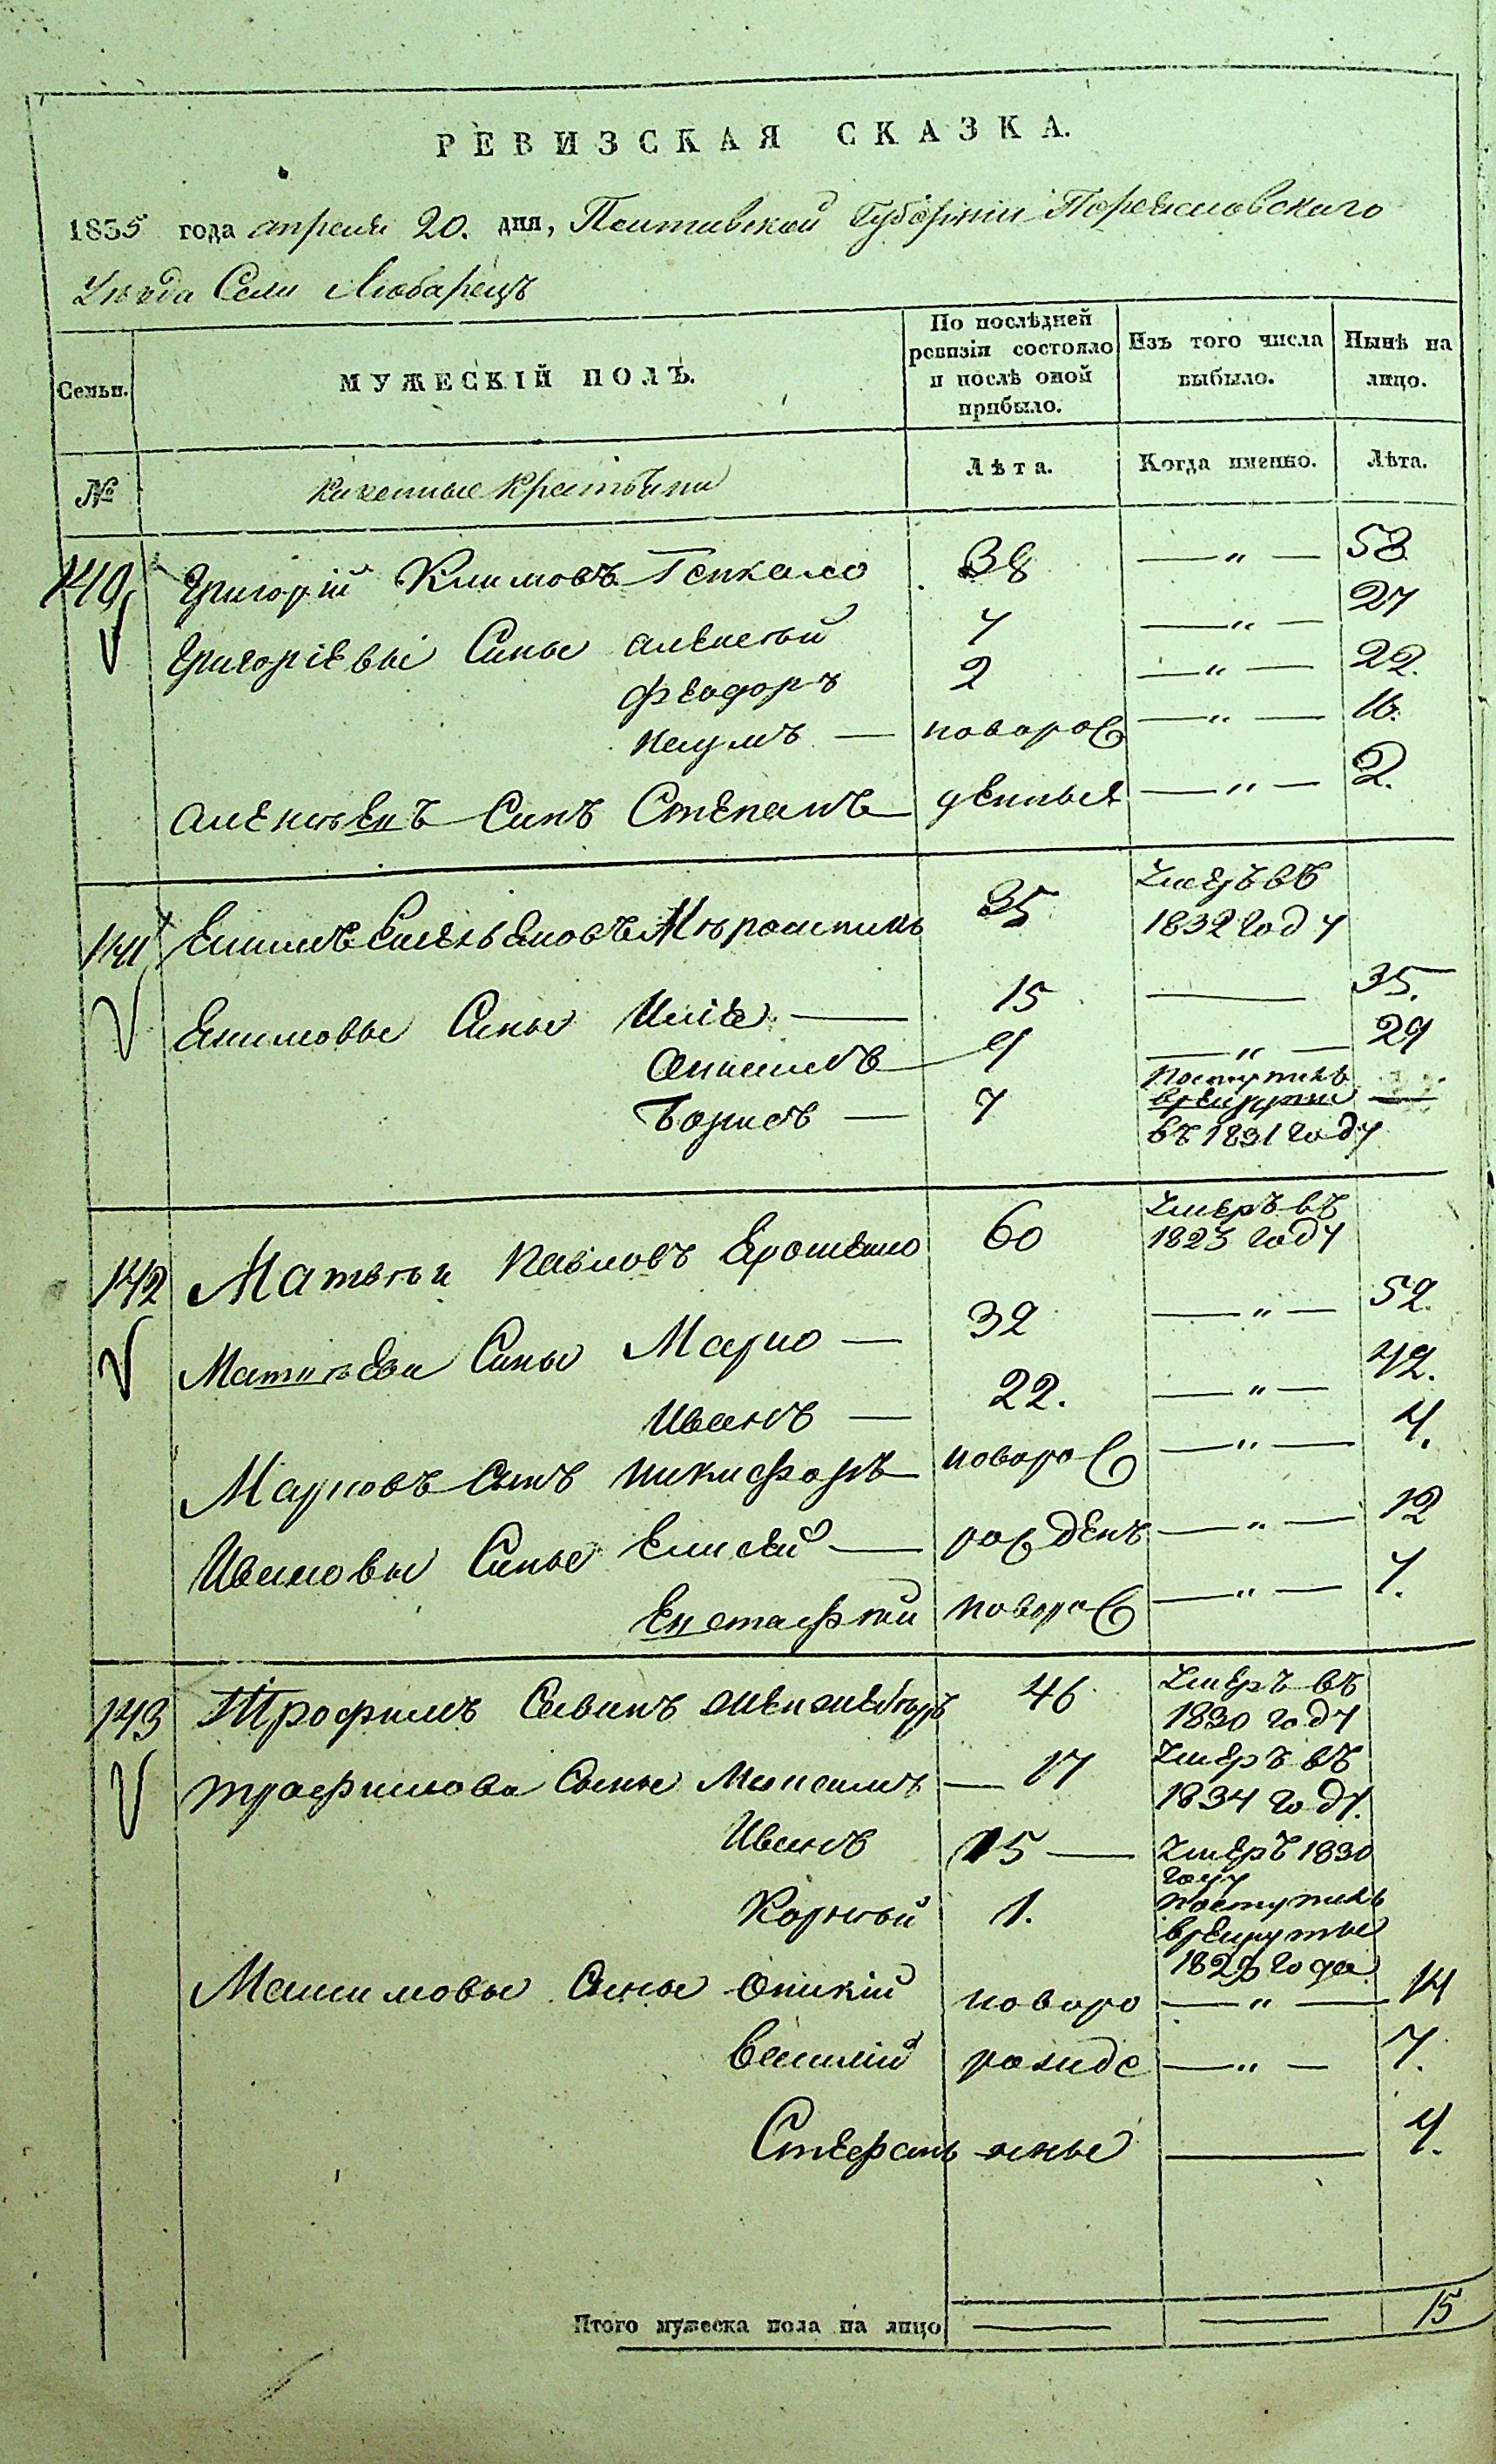 РЕВИЗСКАЯ СКАЗКА.
1835 года апреля 20. дня, Полтавской Губернии Переяславского
Уезда Села Любарецъ
Семьи. МУЖЕСКІЙ ПОЛЪ. По послѣдней ревизіи состояло и послѣ оной прибыло. Изъ того числа выбыло. Нынѣ на лицо.
№ казенные крестьяни Лѣта. Когда именно. Лѣта.
140 Григорій Климовъ Гепкало 38 — „ — 58
Григоріевы Сины алексѣй 7 — „ — 27
Феодоръ 2 — „ — 22.
Наумъ — новорож — „ — 16.
алексѣевъ Синъ Степанъ денные — „ — 2.
141 Екимъ Емельяновъ 35 Умеръ въ 1832 году
Екимовы Сины Илія — 15 — 35.
Анисимъ 9 — „ — 29
Борисъ — 7 поступилъ врекруты въ 1831 году —
142 Матвѣй Павловъ Ерошенко 60 Умеръ въ 1823 году
Матвѣеви Сины Марко — 32 — „ — 52.
Иванъ — 22. — „ — 42.
Марковъ Синъ Никифоръ новорож — „ — 4.
Ивановы Сины Елисей — рожденъ — „ — 12
Евстафій новорож — „ — 7.
143 Трофимъ Савинъ 46 Умеръ въ 1830 году
Трофимовы Сины Максимъ — 17 Умеръ въ 1834 году.
Иванъ 15 — Умеръ 1830 году
Корнѣй 1. поступилъ врекруты 1828 года
Максимовы Сины Оникій новоро — „ — 14
Василій рожде — „ — 7.
Стефанъ нные — 4.
Итого мужеска пола на лицо — — 15